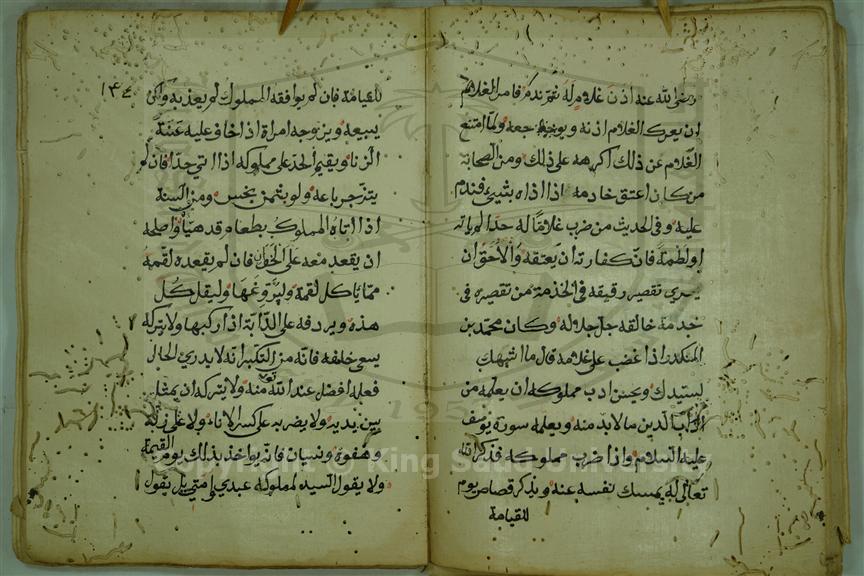 رضى الله عنه اذن غلام له ثم ندم فامر الغلام
ان يعرك الغلام اذنه ويوجعه ولما امتنع
الغلام عن ذلك اكرهه على ذلك ومن الصحابة
من كان اعتق خادمه اذا اذاه بشيء فندم
عليه وفي الحديث من ضرب غلاما له حدا لم ياته
او لطمة فان كفارته ان يعتقه والاحق ان
يرى تقصير رقيقه في الخدمة من تقصيره في
خدمة خالقه جل جلاله وكان محمد بن
المنكدر اذا غضب على غلامه قال ما اشبهك
لسيدك ويحسن ادب مملوكه ان يعلمه من
الدين ما لابد منه ويعلمه سورة يوسف
عليه السلام واذا ضرب مملوكه فذكر الله
تعالى له يمسك نفسه عنه ويذكر قصاص يوم
للقيامة
١٣٤
للقيامة فان لم يوافقه المملوك لم يعذبه ولكن
يبيعه ويزوجه امراة اذا خاف عليه عنة
الزنا ويقيم الحد على مملوكه اذا اتى حدا فان لم
يتزجر باعه ولو بثمن بخس ومن السنة
اذا اتاه المملوك بطعام قد هيأ واصلحه
ان يقعد معه على الخوان فان لم يقعده لقمه
مما ياكل لقمة وليروغها وليقل كل
هذه ويردفه على الدابة اذا ركبها ولا يتركه
يسعى خلفه فانه من التكبر انه لا يدري لعل
فعله افضل عند الله تعالى منه ولا يتركه ان يمثل
بين يديه ولا يضربه على كسر الاناء ولا على زلة
وهفوة ونسيان فانه يواخذ بذلك يوم القيمة
ولا يقول السيد لمملوكه عبدي امتي بل يقول